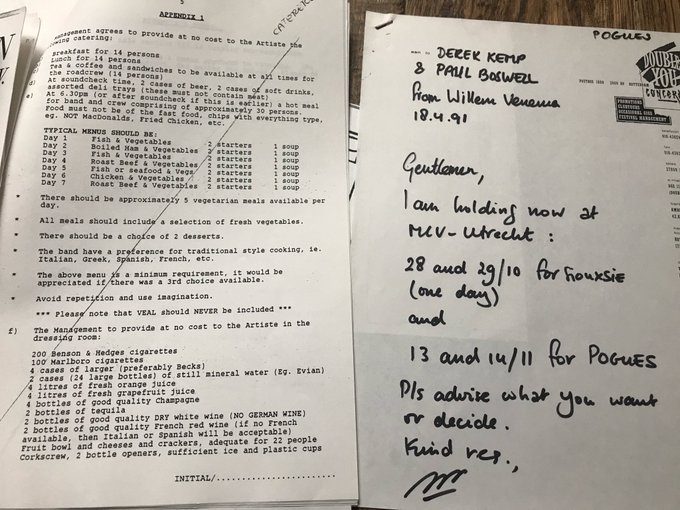 5
APPENDIX 1
CATERING
Management agrees to provide at no cost to the Artiste the
following catering:
Breakfast for 14 persons
Lunch for 14 persons
Tea & coffee and sandwiches to be available at all times for
the roadcrew (14 persons)
At soundcheck time, 2 cases of beer, 2 cases of soft drinks,
assorted deli trays (these must not contain meat)
At 6.30pm (or after soundcheck if this is earlier) a hot meal
for band and crew comprising of approximately 30 persons.
Food must not be of the fast food, chips with everything type,
eg. NOT MacDonalds, Fried Chicken, etc.
TYPICAL MENUS SHOULD BE:
Day 1 Fish & Vegetables 2 starters 1 soup
Day 2 Boiled Ham & Vegetables 2 starters 1 soup
Day 3 Fish & Vegetables 2 starters 1 soup
Day 4 Roast Beef & Vegetables 2 starters 1 soup
Day 5 Fish or seafood & Vegs 2 starters 1 soup
Day 6 Chicken & Vegetables 2 starters 1 soup
Day 7 Roast Beef & Vegetables 2 starters 1 soup
* There should be approximately 5 vegetarian meals available per
day.
* All meals should include a selection of fresh vegetables.
* There should be a choice of 2 desserts.
* The band have a preference for traditional style cooking, ie.
Italian, Greek, Spanish, French, etc.
* The above menu is a minimum requirement, it would be
appreciated if there was a 3rd choice available.
* Avoid repetition and use imagination.
*** Please note that VEAL should NEVER be included ***
f) The Management to provide at no cost to the Artiste in the
dressing room:
200 Benson & Hedges cigarettes
100 Marlboro cigarettes
4 cases of larger (preferably Becks)
2 cases (24 large bottles) of still mineral water (Eg. Evian)
4 litres of fresh orange juice
4 litres of fresh grapefruit juice
4 bottles of good quality Champagne
2 bottles of tequila
2 bottles of good quality DRY white wine (NO GERMAN WINE)
2 bottles of good quality French red wine (if no French
available, then Italian or Spanish will be acceptable)
Fruit bowl and cheeses and crackers, adequate for 22 people
Corkscrew, 2 bottle openers, sufficient ice and plastic cups
INITIAL/........................
POGUES
DOUBLE
YOU
CONCERTS
PROMOTIONS
OCCASIONAL GIGS
FESTIVAL MANAGEMENT
DEREK KEMP
& PAUL BOSWELL
from Willem Venema
18.4.91
Gentlemen,
I am holding now at
MCV-Utrecht :
28 and 29/10 for SIOUXSIE
(one day)
and
13 and 14/11 for POGUES
Pls advise what you want
or decide.
Kind reg.,